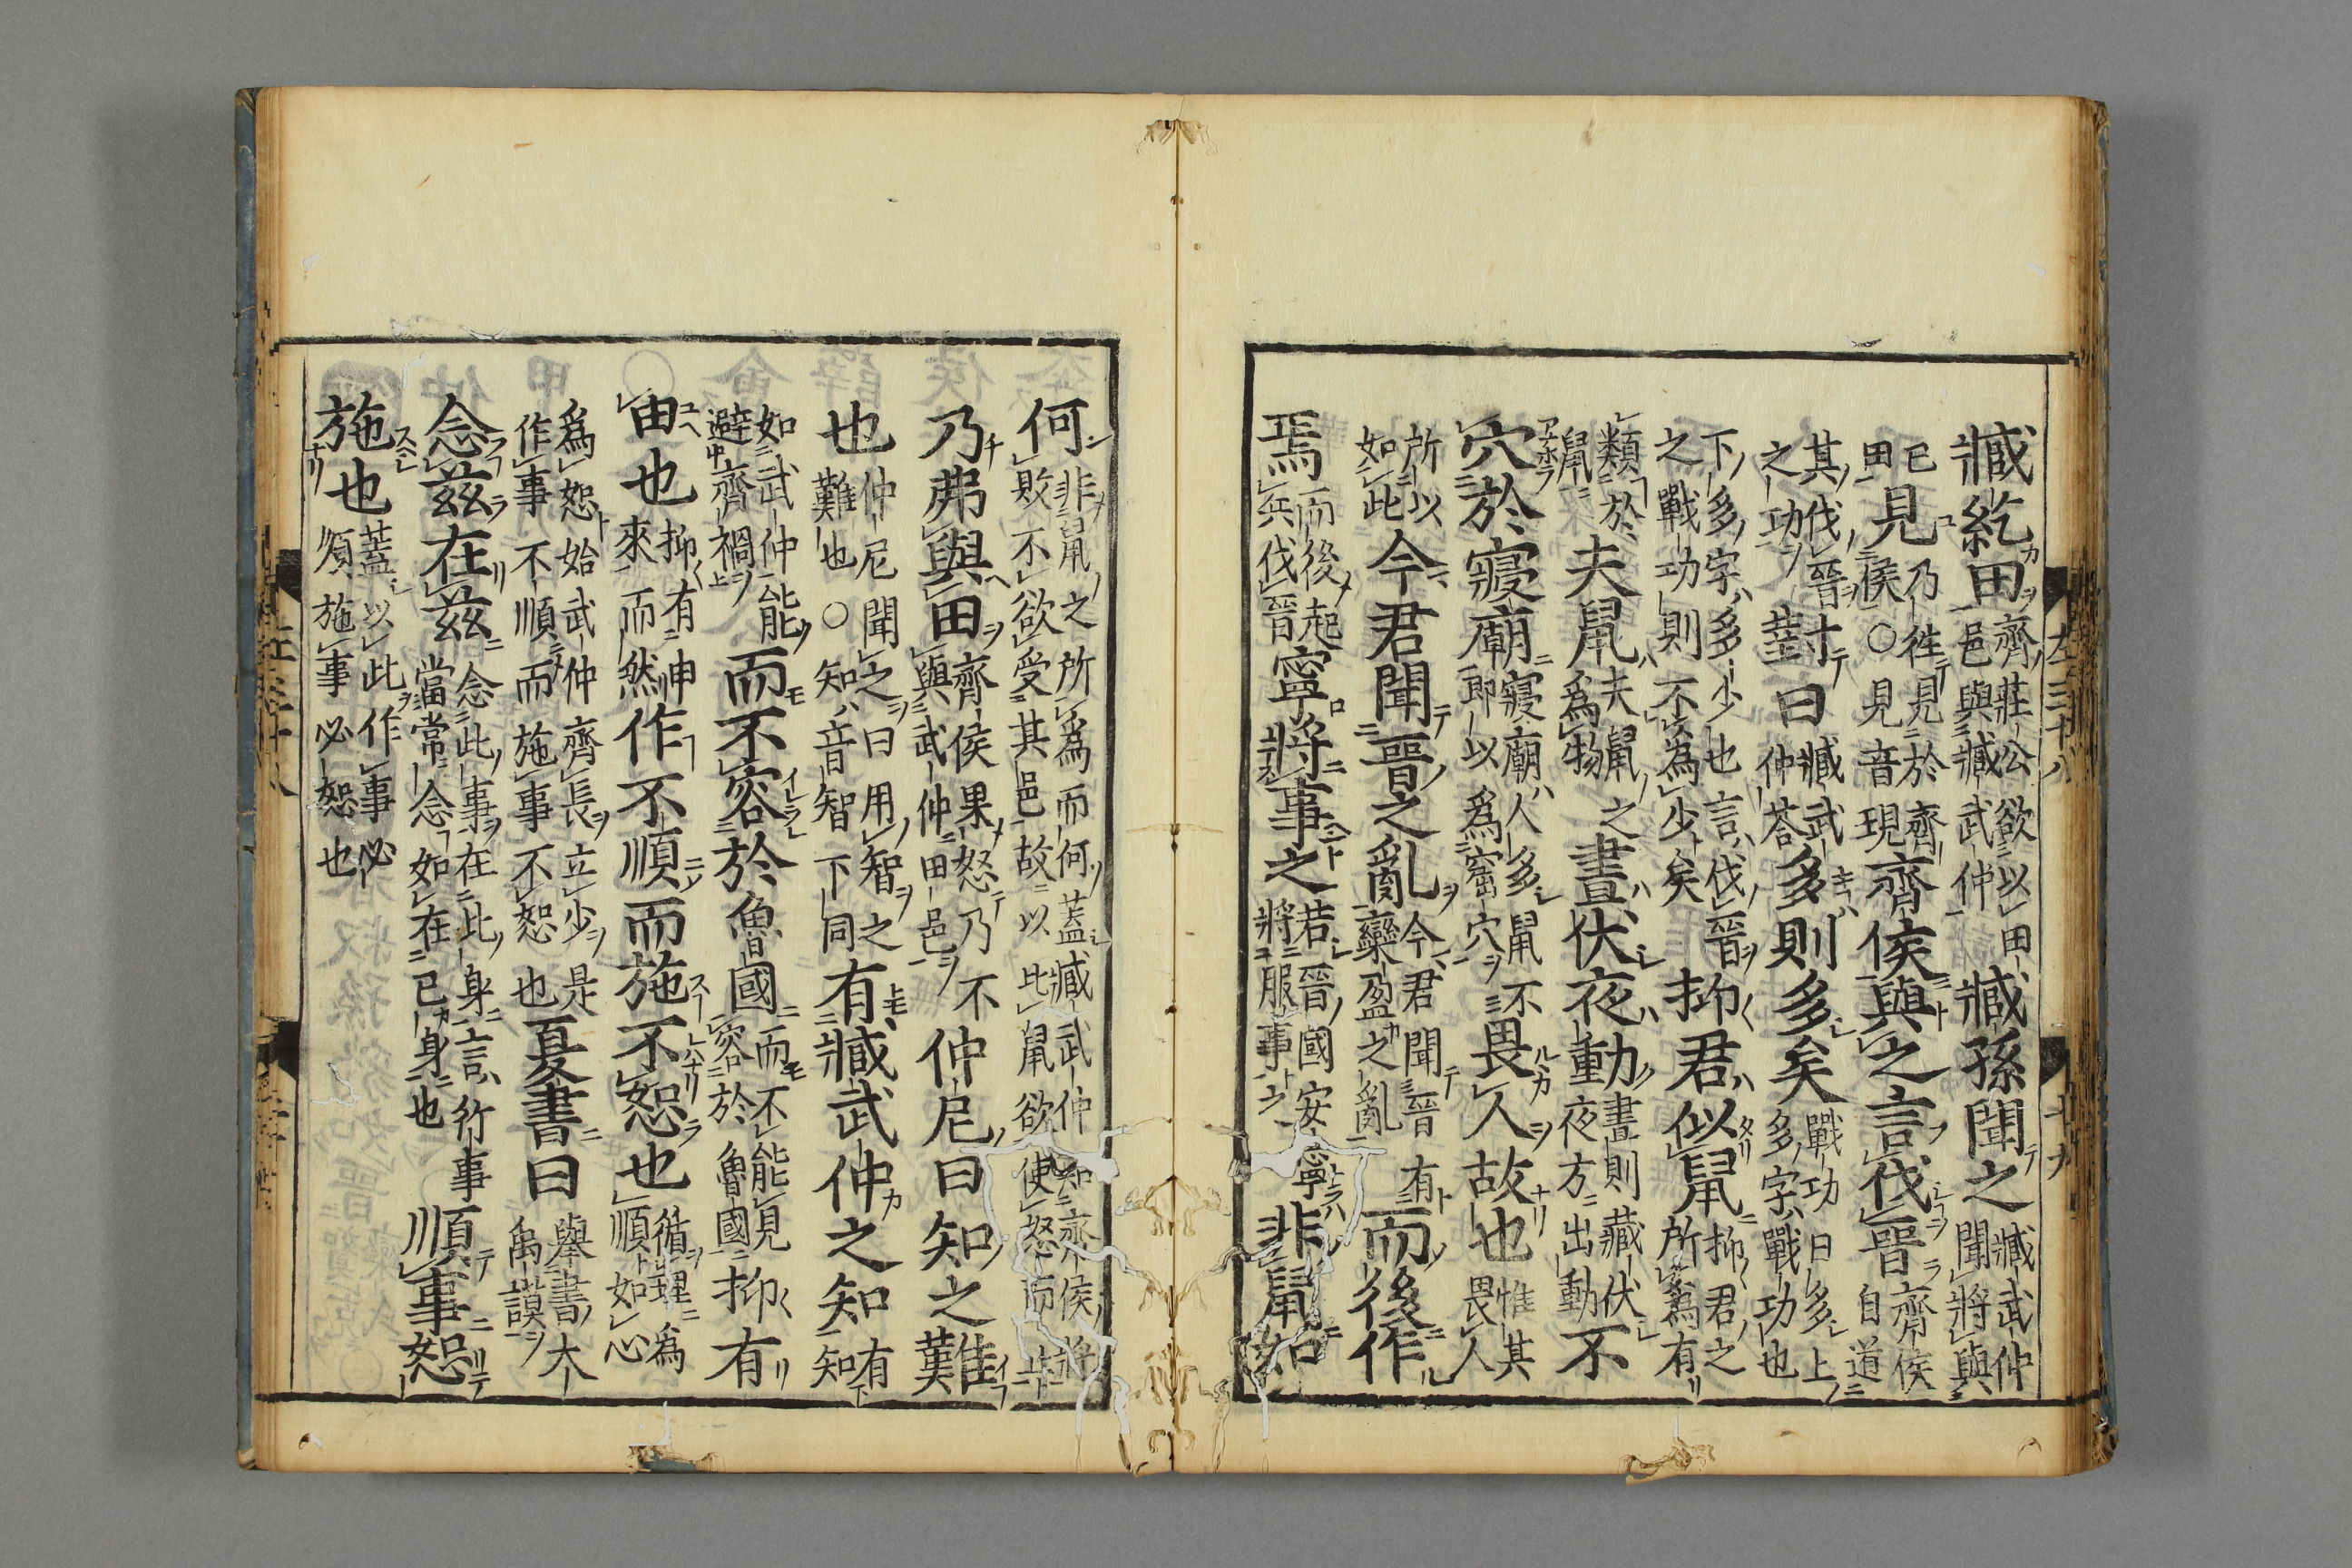 臧紇田齊莊公欲以田邑與臧武仲臧孫聞之臧武仲聞將與
已田見乃徃見於齊侯○見音現齊侯與之言伐晉齊侯自道
其伐晉之功對曰臧武仲荅多則多矣戰功曰多上多字戰功也
下多字多少也言伐晉之戰功則不為少矣抑君似鼠抑君之所為有
類於鼠夫鼠夫鼠之為物晝伏夜動晝則藏伏夜方出動不
穴於寢廟寢廟人多鼠不即以為窟穴畏人故也惟其畏人
所以如此今君聞晉之亂今君聞晉有欒盈之亂而後作
焉而後起兵伐晉寧將事之若晉國安寧將服事之非鼠如
何非鼠之所為而何蓋臧武仲知齊侯將敗不欲受其邑故以比鼠欲使怒而止
乃弗與田齊侯果怒乃不與武仲田邑仲尼曰知之難
也仲尼聞之曰用智之難也○知音智下同有臧武仲之知有知
如武仲能避齊禍而不容於魯國而不能見容於魯國抑有
由也抑有申來而然作不順而施不恕也循理為順如心
為恕始武仲齊長立少是作事不順而施事不恕也夏書曰舉書大禹謨
念茲在茲念此事在此身言行事當常念如在己身也順事恕
施也蓋以此作事必順施事必恕也